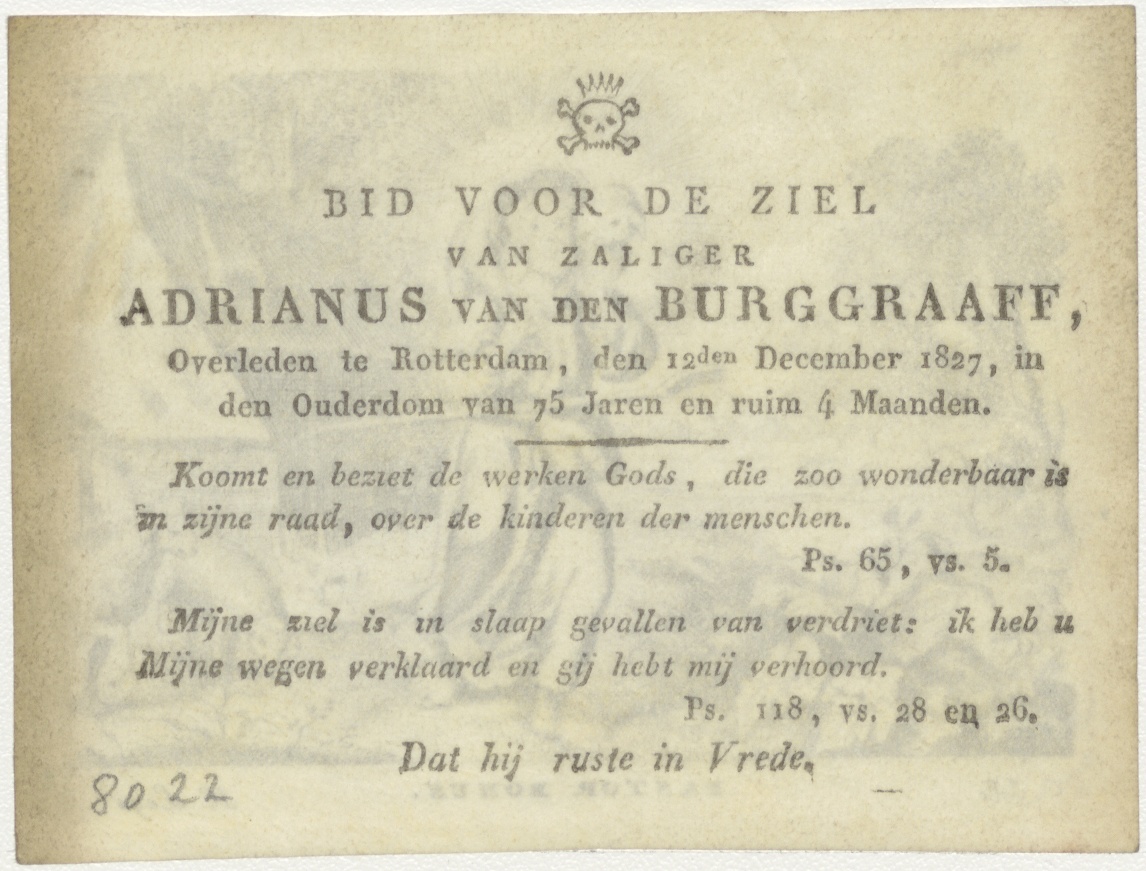 BID VOOR DE ZIEL
VAN ZALIGER
ADRIANUS VAN DEN BURGGRAAFF,
Overleden te Rotterdam, den 12den December 1827, in
den Ouderdom van 75 Jaren en ruim 4 Maanden.
Koomt en beziet de werken Gods, die zoo wonderbaar is
in zijne raad, over de kinderen der menschen.
Ps. 65, vs. 5.
Mijne ziel is in slaap gevallen van verdriet: ik heb u
Mijne wegen verklaard en gij hebt mij verhoord.
Ps. 118, vs. 28 en 26.
Dat hij ruste in Vrede.
8022